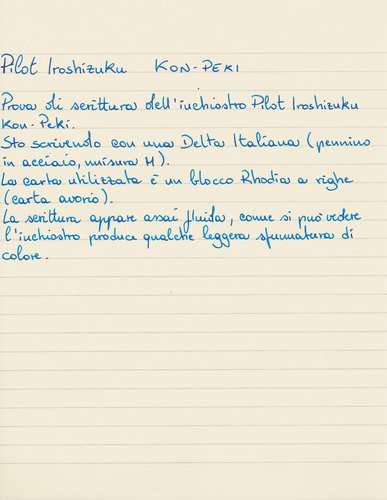 Pilot Iroshizuku KON-PEKI
Prova di scrittura dell'inchiostro Pilot Iroshizuku
Kon-Peki.
Sto scrivendo con una Delta Italiana (pennino
in acciaio, misura M).
La carta utilizzata è un blocco Rhodia a righe
(carta avorio).
La scrittura appare assai fluida, come si può vedere
l'inchiostro produce qualche leggera sfumatura di
colore.